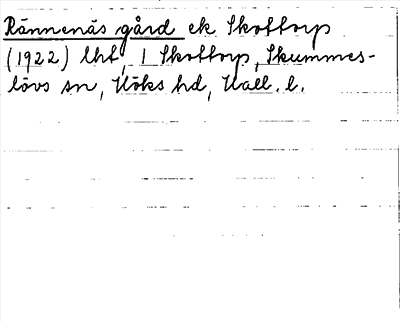 Rännenäs gård ek Skottorp
(1922) lht, 1 Skottorp, Skummes-
lövs sn, Höks hd, Hall. l.